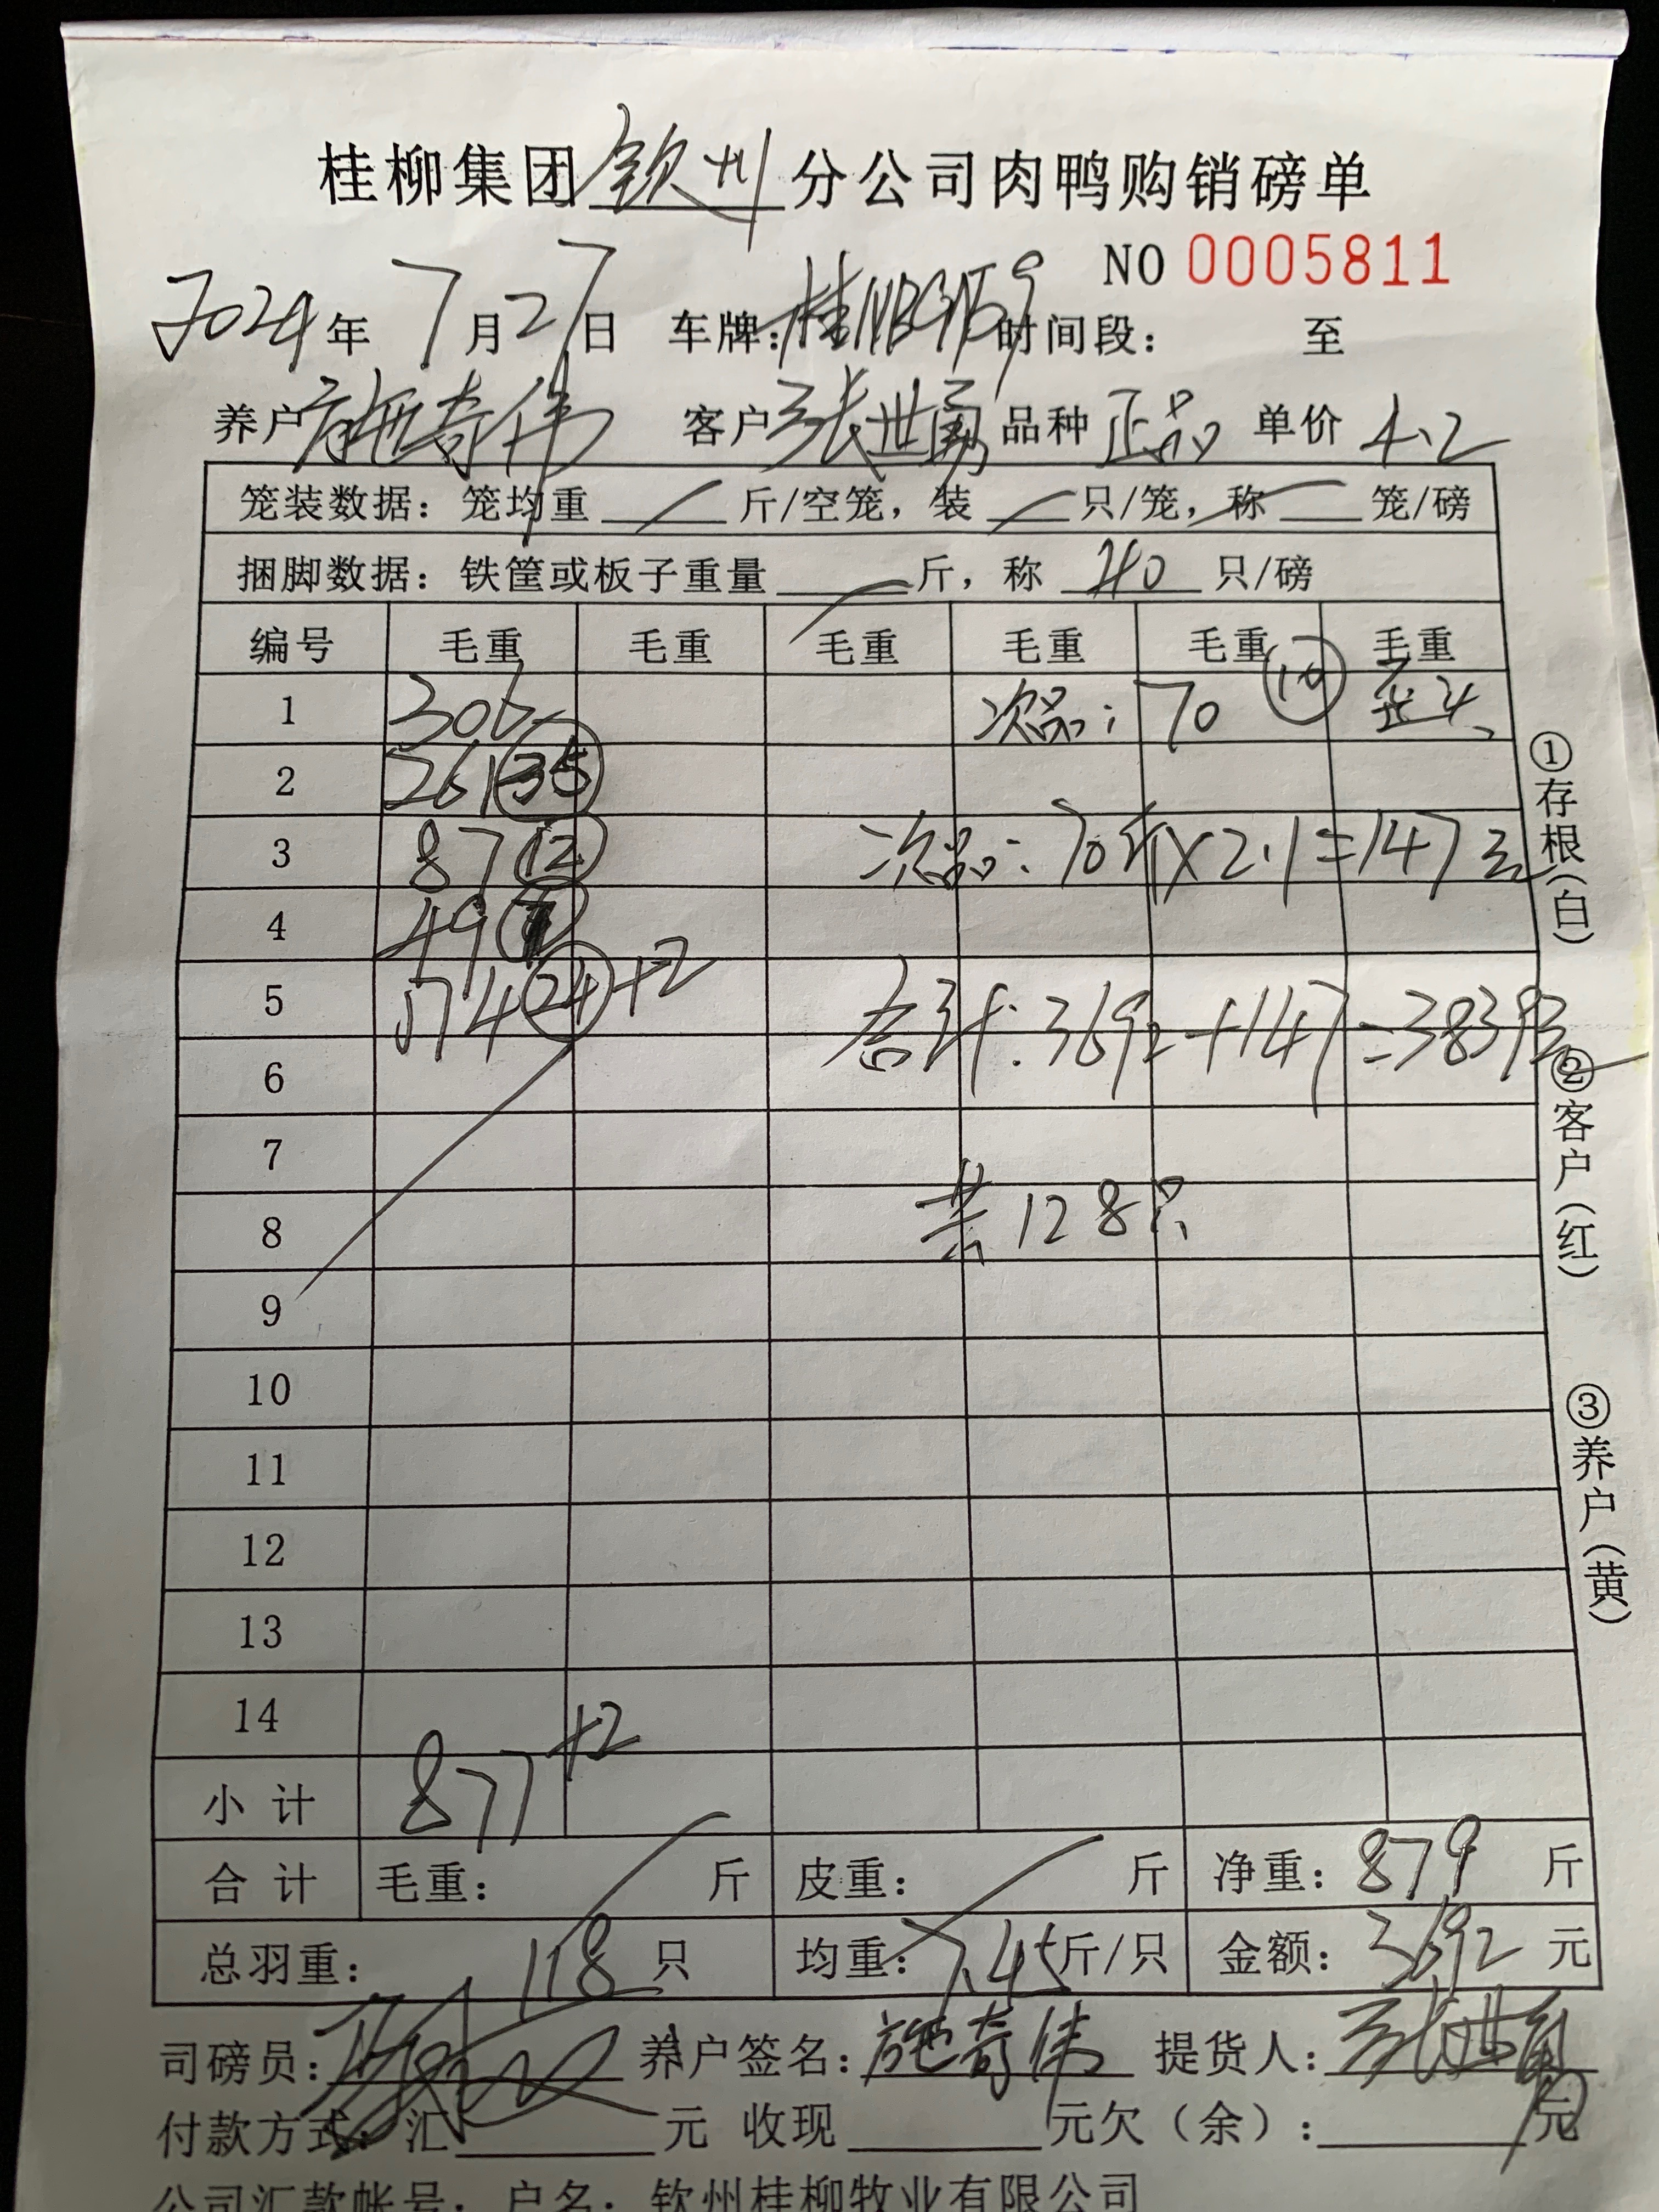 桂柳集团钦州分公司肉鸭购销磅单
NO 0005811
2024年7月27日 车牌: 时间段: 至
养户施奇伟 客户张世勇 品种正品 单价4.2
笼装数据: 笼均重 斤/空笼, 装 只/笼, 称 笼/磅
捆脚数据: 铁筐或板子重量 斤, 称 40 只/磅
编号 毛重 毛重 毛重 毛重 毛重 毛重
1 306 次品: 70 (10)
2 261 (35)
3 87 (12) 次品: 70斤×2.1=147元
4 49 (7)
5 174 (24) +2 合计: 3692+147=3839元
6
7
8 共128只
9
10
11
12
13
14
小计 877 +2
合计 毛重: 斤 皮重: 斤 净重: 879 斤
总羽重: 118 只 均重: 7.45斤/只 金额: 3692 元
司磅员: 养户签名: 施奇伟 提货人: 张世勇
付款方式: 汇 元 收现 元欠(余): 元
公司汇款帐号: 户名: 钦州桂柳牧业有限公司
①存根(白)
②客户(红)
③养户(黄)